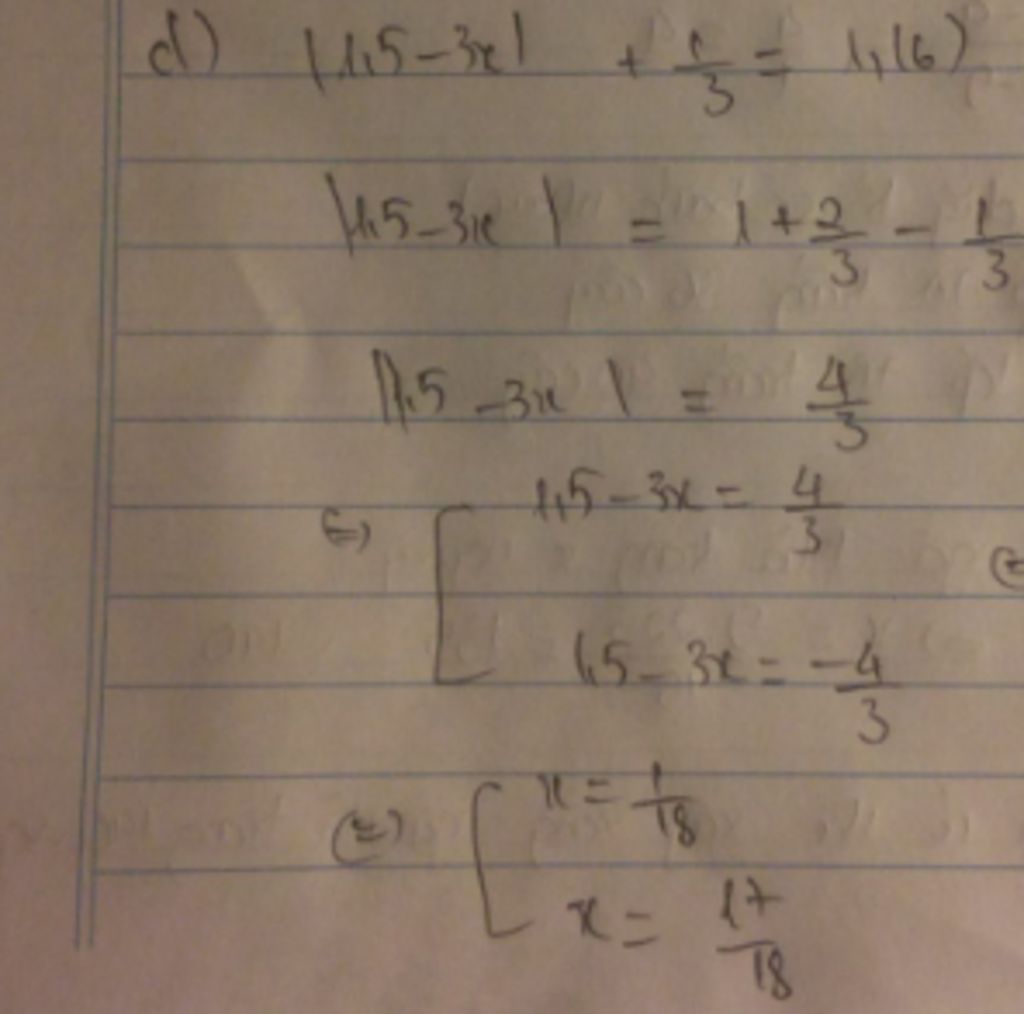 d) |1,5-3x| + 1/3 = 1,(6)
|1,5-3x| = 1 + 2/3 - 1/3
|1,5-3x| = 4/3
⇔ [ 1,5-3x = 4/3 (=
1,5-3x = -4/3
⇔ [ x = 1/18
x = 17/18